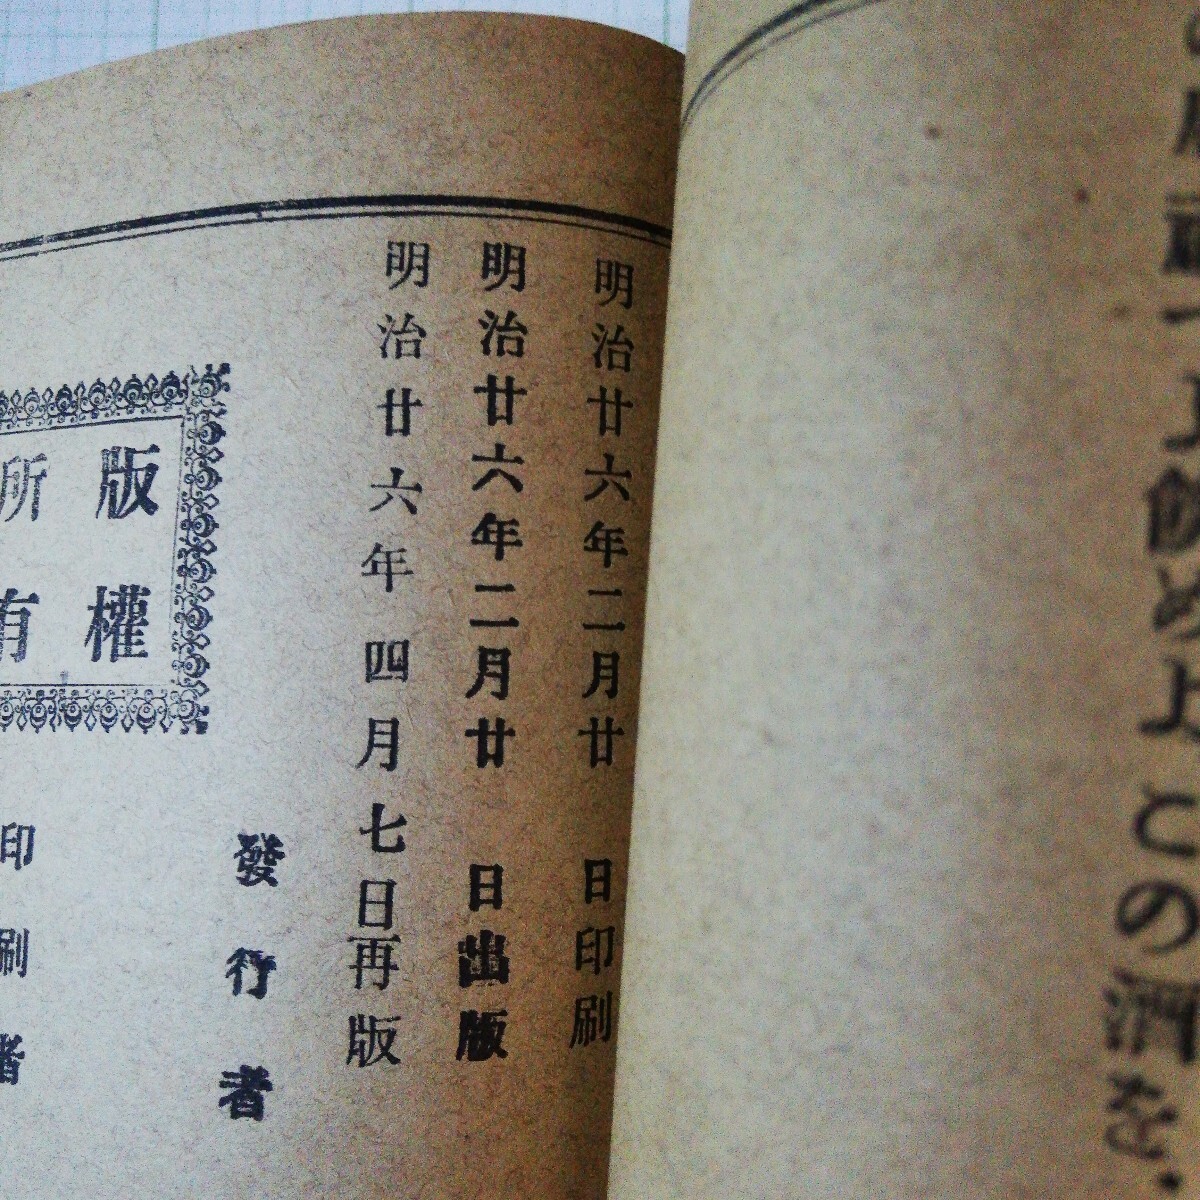 明治廿六年二月廿日印刷
明治廿六年二月廿日出版
明治廿六年四月七日再版
發行者
版權
所有
印刷者